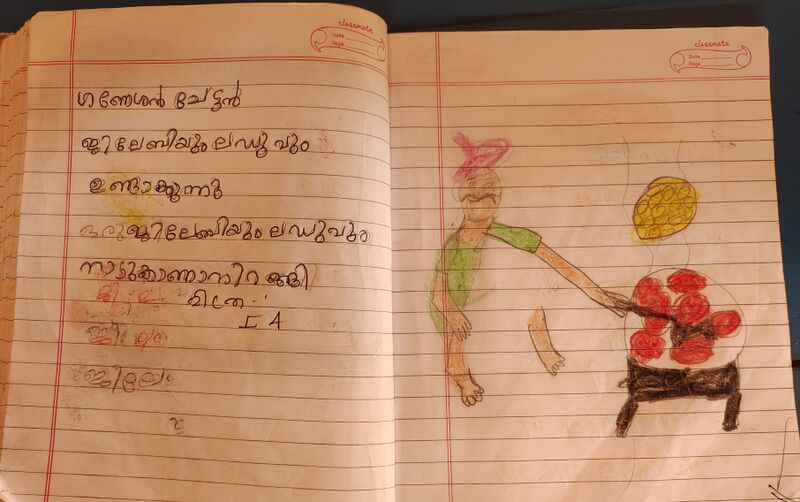 classmate
Date
Page
ഗണേശൻ ചേട്ടൻ
ജിലേബിയും ലഡുവും
ഉണ്ടാക്കുന്നു
ഒരു ജിലേബിയും ലഡുവും
നാടുകാണാനിറങ്ങി
മിത്ര
I A
ജിലേ
classmate
Date
Page